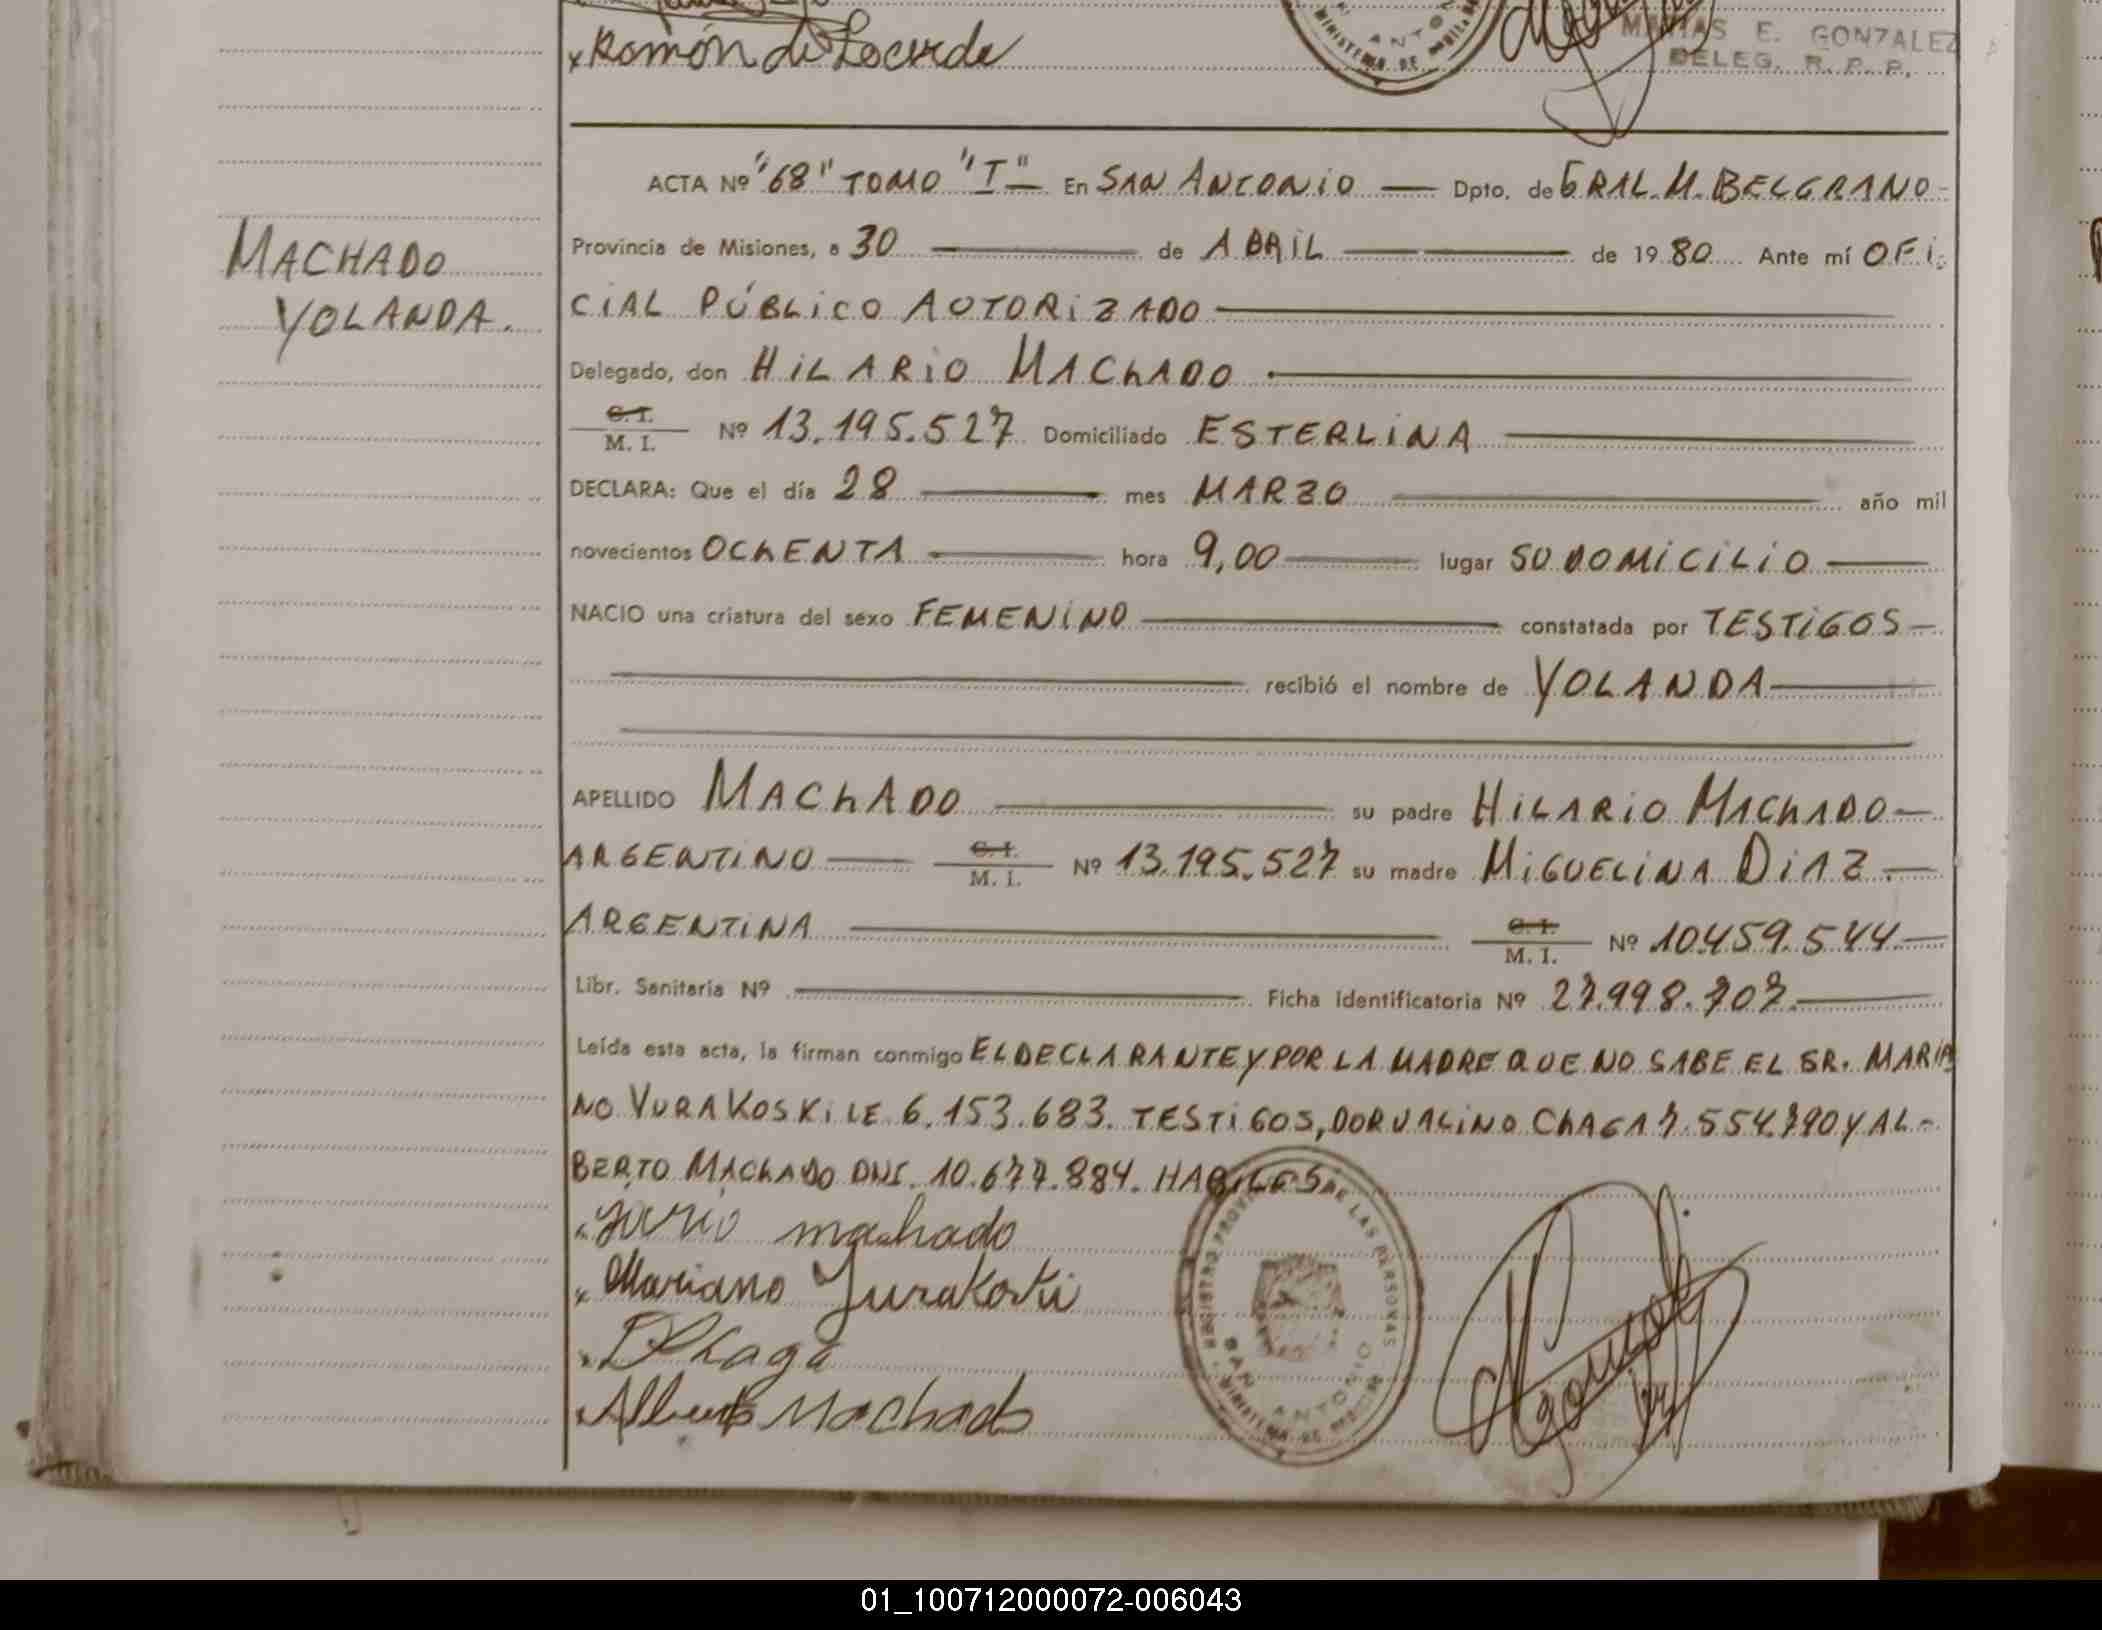 Ramón de Lacerde
MATIAS E. GONZALEZ
DELEG. R. P. P.
ACTA Nº "68" TOMO "I" En SAN ANTONIO Dpto. de GRAL. M. BELGRANO
MACHADO
YOLANDA.
Provincia de Misiones, a 30 de ABRIL de 1980 Ante mí OFI
CIAL PÚBLICO AUTORIZADO
Delegado, don HILARIO MACHADO
C. I.
M. I. Nº 13.195.527 Domiciliado ESTERLINA
DECLARA: Que el día 28 mes MARZO año mil
novecientos OCHENTA hora 9,00 lugar SU DOMICILIO
NACIO una criatura del sexo FEMENINO constatada por TESTIGOS
recibió el nombre de YOLANDA
APELLIDO MACHADO su padre HILARIO MACHADO
ARGENTINO C. I. M. I. Nº 13.195.527 su madre MIGUELINA DIAZ.
ARGENTINA C. I. M. I. Nº 10.459.544
Libr. Sanitaria Nº Ficha Identificatoria Nº 27.998.707.
Leída esta acta, la firman conmigo EL DECLARANTE Y POR LA MADRE QUE NO SABE EL SR. MARIA
NO YURAKOSKI LE 6.153.683. TESTIGOS, DORVALINO CHAGA 7.554.790 Y AL-
BERTO MACHADO DNI. 10.677.884. HABILES
machado
Mariano Yurakoski
D Chaga
Alberto Machado
REGISTRO PROVINCIAL DE LAS PERSONAS
SAN ANTONIO
01_100712000072-006043